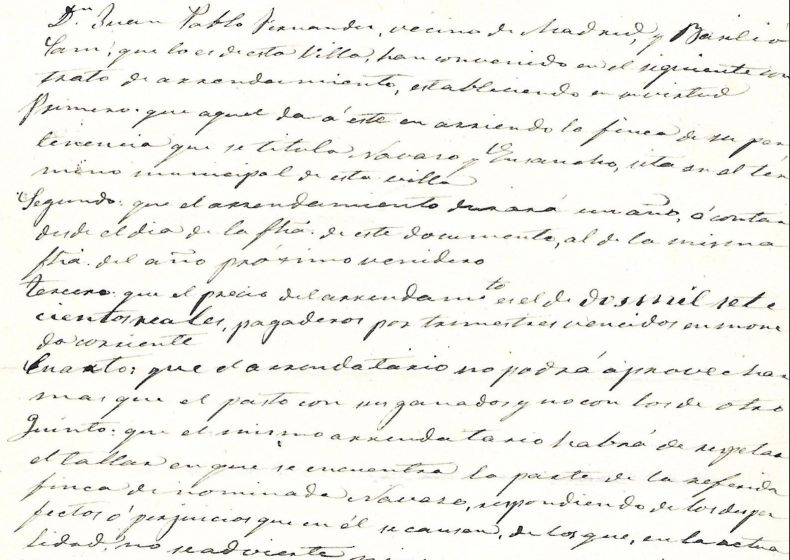 Dn. Juan Pablo Fernandez, vecino de Madrid, y Basilio
que lo es de esta Villa, han convenido en el siguiente con
trato de arrendamiento, estableciendo en su virtud
Primero: que aquel da á este en arriendo la finca de su per
tenencia que se titula Navazo y Ensancho, sita en el tér
mino municipal de esta villa
Segundo: que el arrendamiento durará un año, á contar
desde el dia de la fhã. de este documento, al de la misma
fhã. del año próximo venidero
Tercero: que el precio del arrendamto. es el de dos mil sete
cientos reales, pagaderos por trimestres vencidos en mone
da corriente
Cuarto: que el arrendatario no podrá aprovechar
mas que el pasto con sus ganados y no con los de otro
Quinto: que el mismo arrendatario habrá de respetar
el tallar en que se encuentra la parte de la referida
finca denominada Navazo, respondiendo de los desper
fectos ó perjuicios que en él se causen, de los que, en la actua
lidad, no se advierte